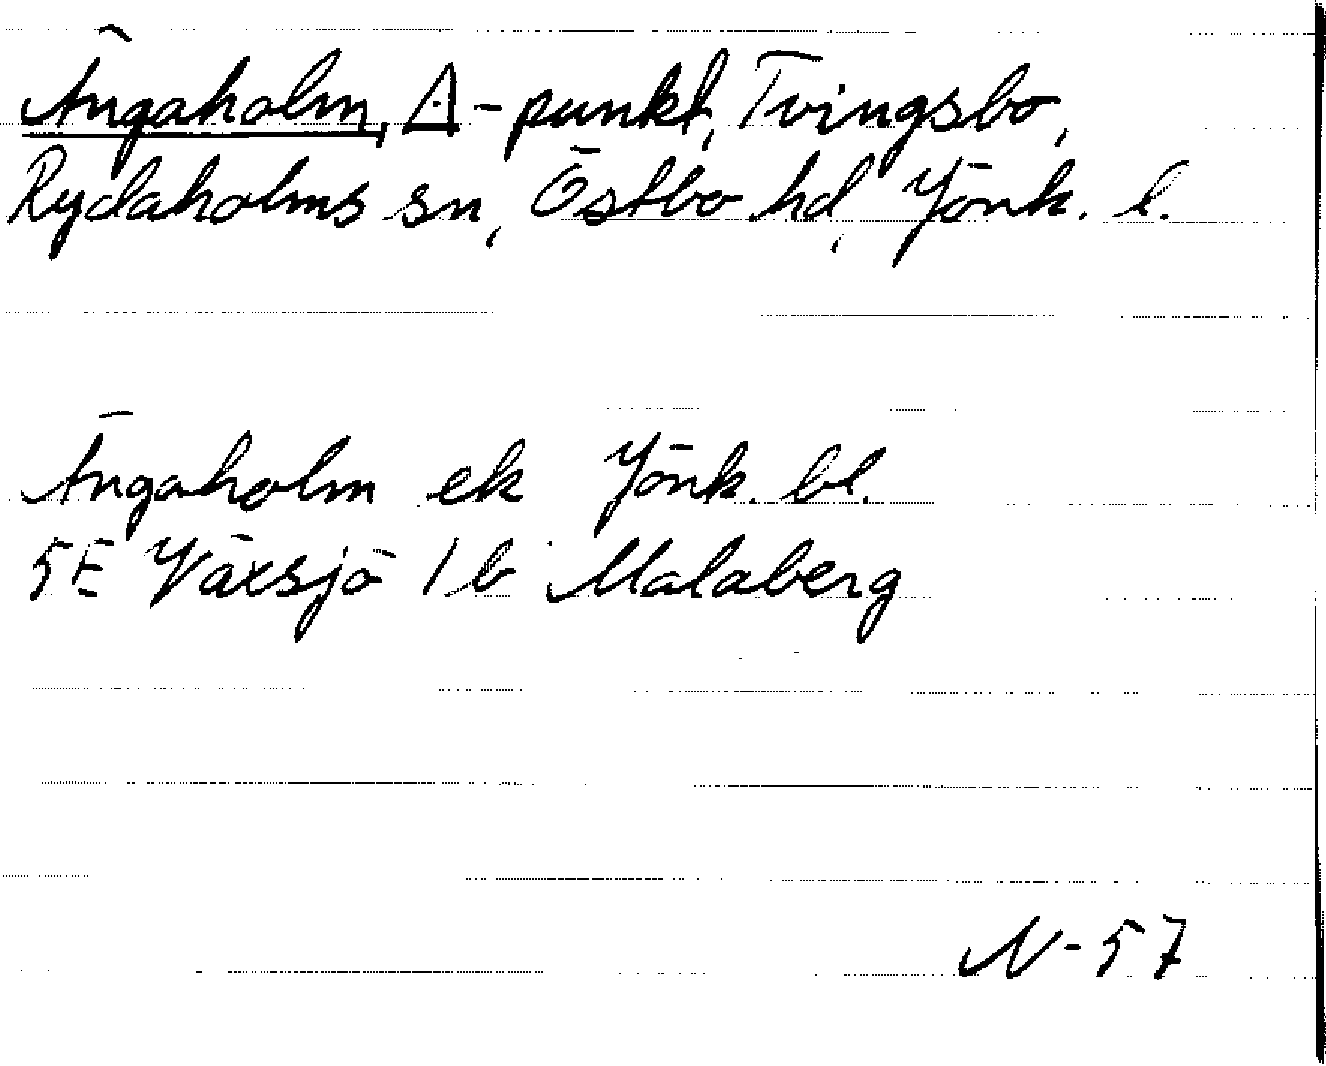 Ängaholm, Δ-punkt, Tvingsbo,
Rydaholms sn, Östbo hd, Jönk. l.
Ängaholm ek Jönk. bl.
5E Växsjö 1b Malaberg
N-57